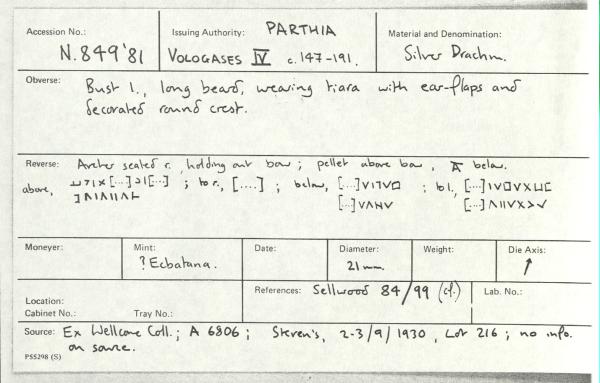 Accession No.: N.849'81
Issuing Authority: PARTHIA
VOLOGASES IV c.147-191.
Material and Denomination: Silver Drachm.
Obverse: Bust l., long beard, wearing tiara with ear-flaps and
decorated round crest.
Reverse: Archer seated r., holding out bow; pellet above bow, A below.
above, [...] [...] ; to r., [....] ; below, [...] ; to l., [...]
[...] [...]
Moneyer:
Mint: ? Ecbatana.
Date:
Diameter: 21 mm.
Weight:
Die Axis: ↑
Location:
Cabinet No.: Tray No.:
References: Sellwood 84/99 (cf.)
Lab. No.:
Source: Ex Wellcome Coll.; A 6806; Steven's, 2-3/9/1930, Lot 216; no info.
on source.
PS5298 (S)